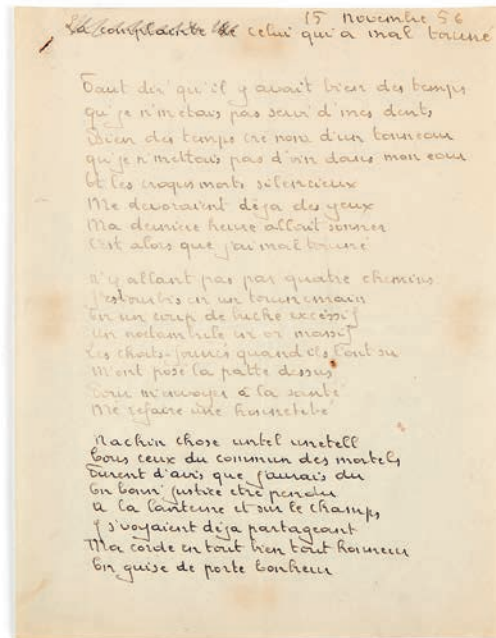 15 novembre 56
La complainte de celui qui a mal tourné
Faut dir' qu'il y avait bien des temps
qu'je n'metais pas servi d'mes dents
Bien des temps cré nom d'un tonneau
qu'je n'mettais pas d'vin dans mon eau
Et les croquemorts silencieux
Me devoraient déja des yeux
Ma dernière heure allait sonner
C'est alors que j'ai mal tourné
N'y allant pas par quatre chemins
J'estourbis en un tournemain
En un coup de buche excessif
Un noctambule en or massif
Les chats-fourrés quand ils l'ont su
M'ont posé la patte dessus
Pour m'envoyer à la santé
Me refaire une honnêteté
Machin chose untel unetell
Tous ceux du commun des mortels
Furent d'avis que j'aurais du
En bonn' justice etre pendu
A la lanterne et sur le champs
Y s'voyaient déja partageant
Ma corde en tout bien tout honneur
En guise de porte bonheur